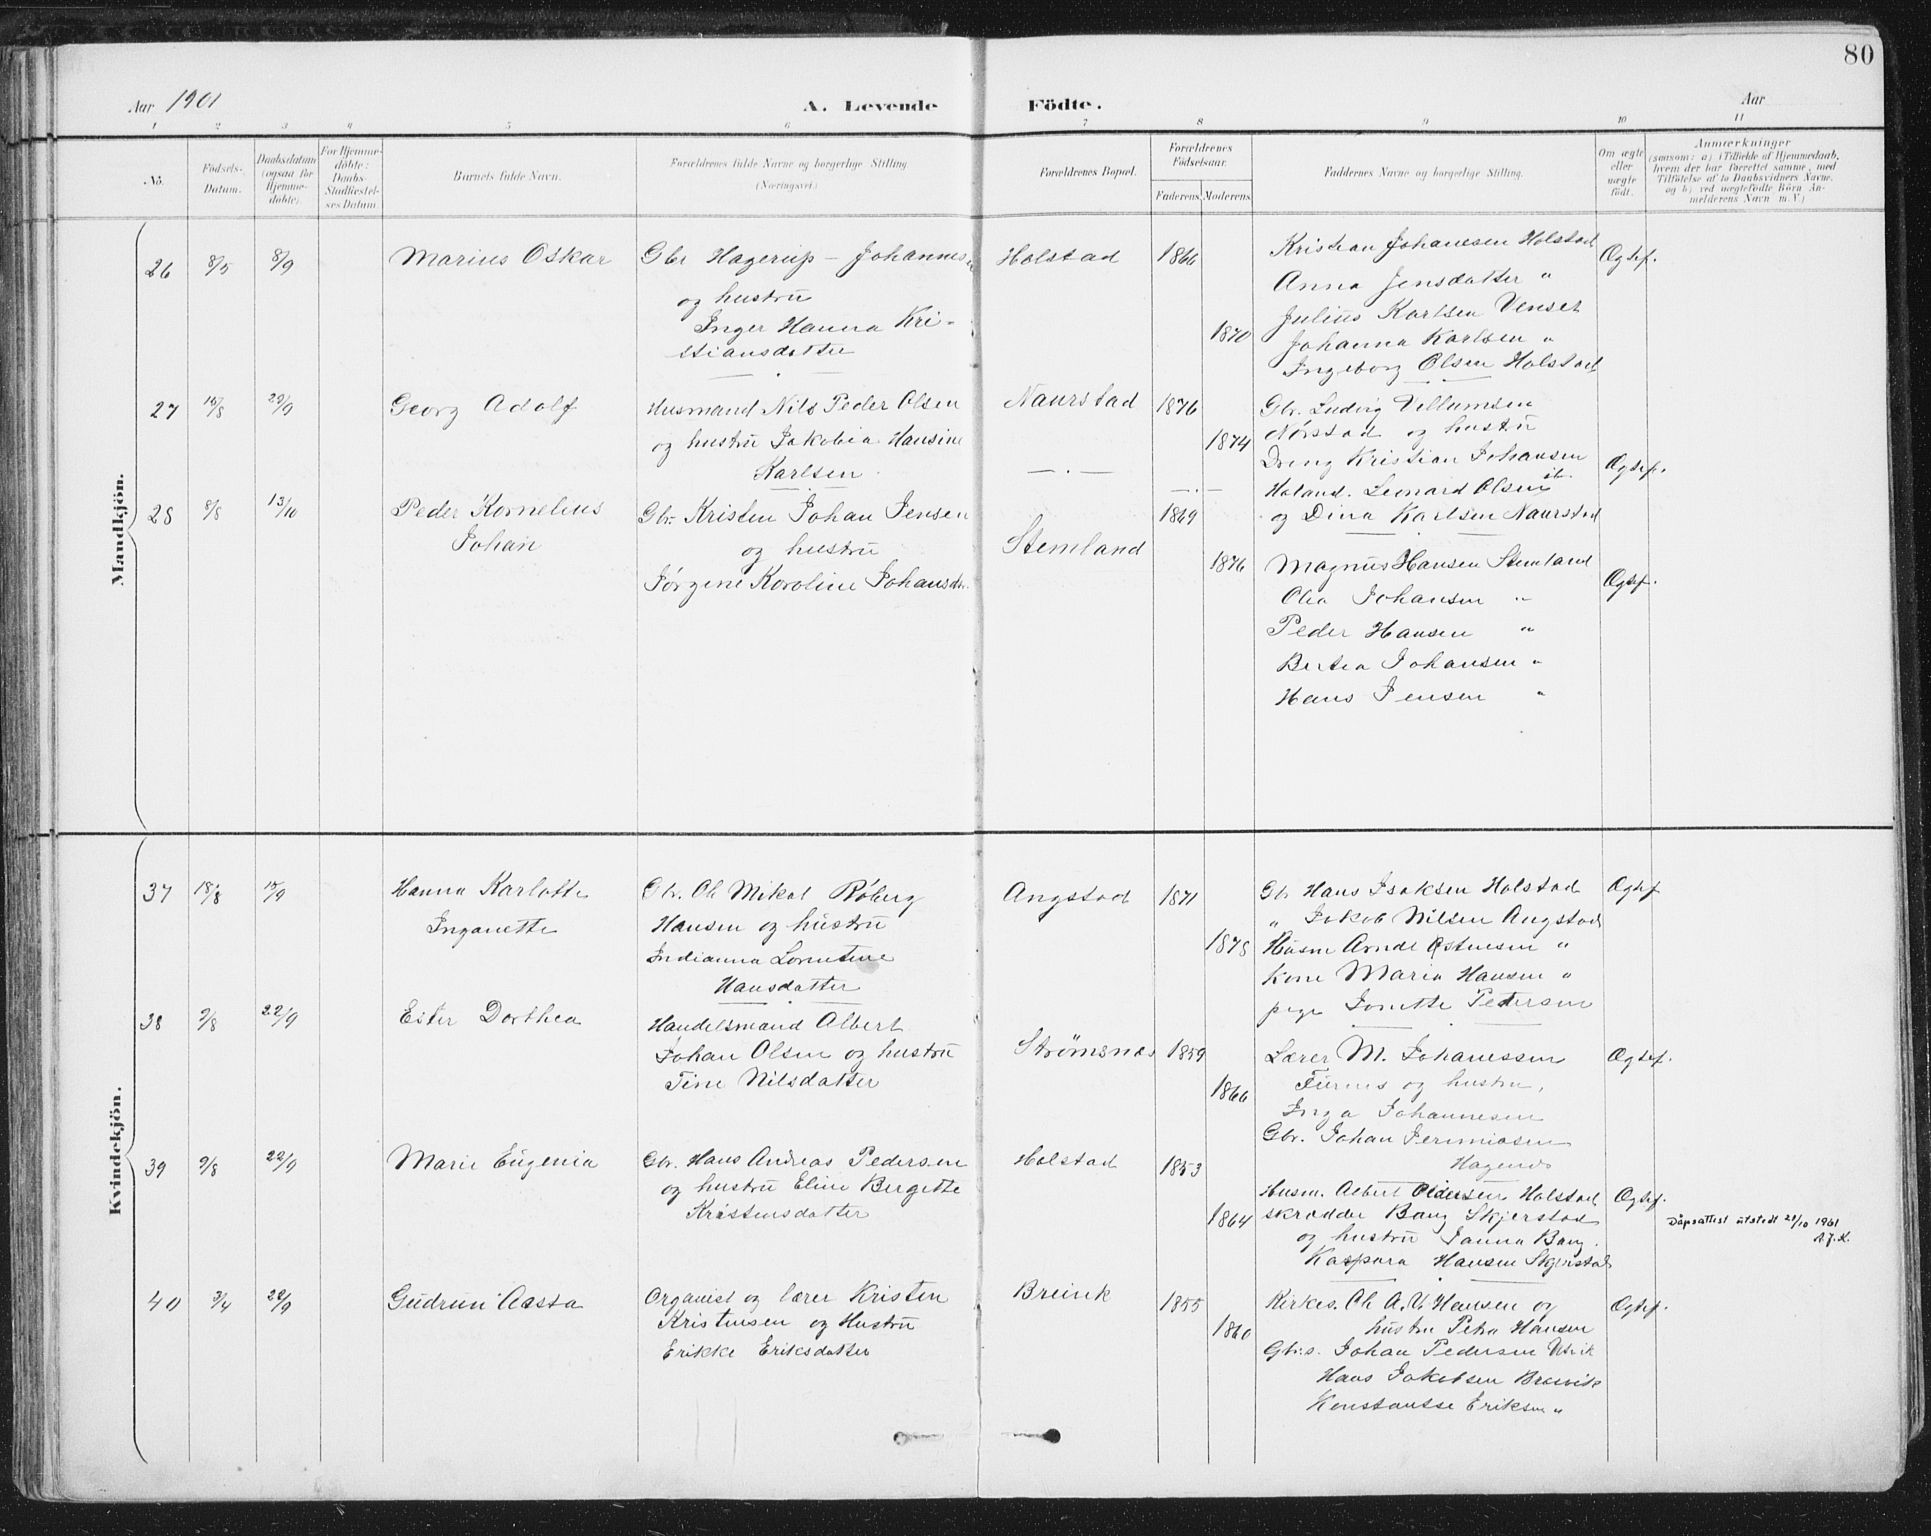 80
Aar 1901
A. Levende
Födte.
Aar
1 2 3 4 5 6 7 8 9 10 11
No.
Födsels-
Datum.
Daabsdatum
(ogsaa for
Hjemme-
döbte).
For Hjemme-
döbte:
Daabs-
Stadfæstel-
ses Datum.
Barnets fulde Navn.
Forældrenes fulde Navne og borgerlige Stilling
(Næringsvei.)
Forældrenes Bopæl.
Forældrenes
Födselsaar.
Faderens
Moderens
Faddernes Navne og borgerlige Stilling.
Om ægte
eller
uægte
født.
Anmærkninger
(saasom: a) i Tilfælde af Hjemmedaab,
hvem der har forrettet samme, med
Tilföielse af to Daabsvidners Navne.
og b) ved uægtefödte Börn An-
melderens Navn m. V.)
Mandkjön.
26
8/5
8/9
Marius Oskar
Gbr Hagerup – Johannes
og hustru
Inger Hanna Kri-
stiansdatter
Holstad
1866
1870
Kristian Johanesen Holstad
Anna Jensdatter "
Julius Karlsen Venset
Johanna Karlsen "
Ingeborg Olsen Holstad
Ægtef.
27
29/9
Georg Adolf
Husmand Nils Peder Olsen
og hustru Jakobia Hansine
Karlsen
Naurstad
1876
1874
Gbr. Ludvig Villumsen
Nørstad og hustru
Dreng Kristian Johansen
Holand. Leonard Olsen
og Dina Karlsen Naurstad
Ægtef.
28
8/8
13/10
Peder Kornelius
Johan
Gbr Kristen Johan Jensen
og hustru
Jørgene Karoline Johansdtr.
Stemland
1869
1876
Magnus Hansen Stemland
Olea Johansen "
Peder Hansen "
Bertea Johansen "
Hans Jensen "
Ægtef.
Kvindekjön.
37
18/8
15/9
Hanna Karlotte
Inganette
Gbr. Ole Mikal Røberg
Hansen og hustru
Indianna Lorentine
Hansdatter
Angstad
1871
1878
Gbr Hans Isaksen Holstad
" Jakob Nilsen Angstad
Husm Arndt Østensen "
Kone Maria Hansen "
pige Jonette Pedersen
Ægtef
38
2/8
22/9
Ester Dorthea
Handelsmand Albert
Johan Olsen og hustru
Tine Nilsdatter
Strømsnæs
1859
1866
Lærer M. Johanessen
Furnes og hustru,
Inga Johannesen
Gbr. Johan Jeremiasen
Hagenæs
Ægtef.
39
9/8
22/9
Marie Eugenia
Gbr. Hans Andreas Pedersen
og hustru Eline Bergette
Kristensdatter
Holstad
1853
1864
Husm. Albert Pedersen Holstad
skrædder Bang Skjerstad
og hustru Janna Bang.
Kaspara Hansen Skjerstad
Ægtef.
Dåpsattest utstedt 21/10 1961
A.J.K.
40
3/4
22/9
Gudrun Aasta
Organist og lærer Kristen
Kristensen og Hustru
Erikke Eriksdatter
Breivik
1855
1860
Kirkes. Ch A. V Hansen og
hustru Petra Hansen
Gbr.s. Johan Pedersen Utvik
Hans Jakobsen Breivik
Konstantse Eriksen "
Ægtef.